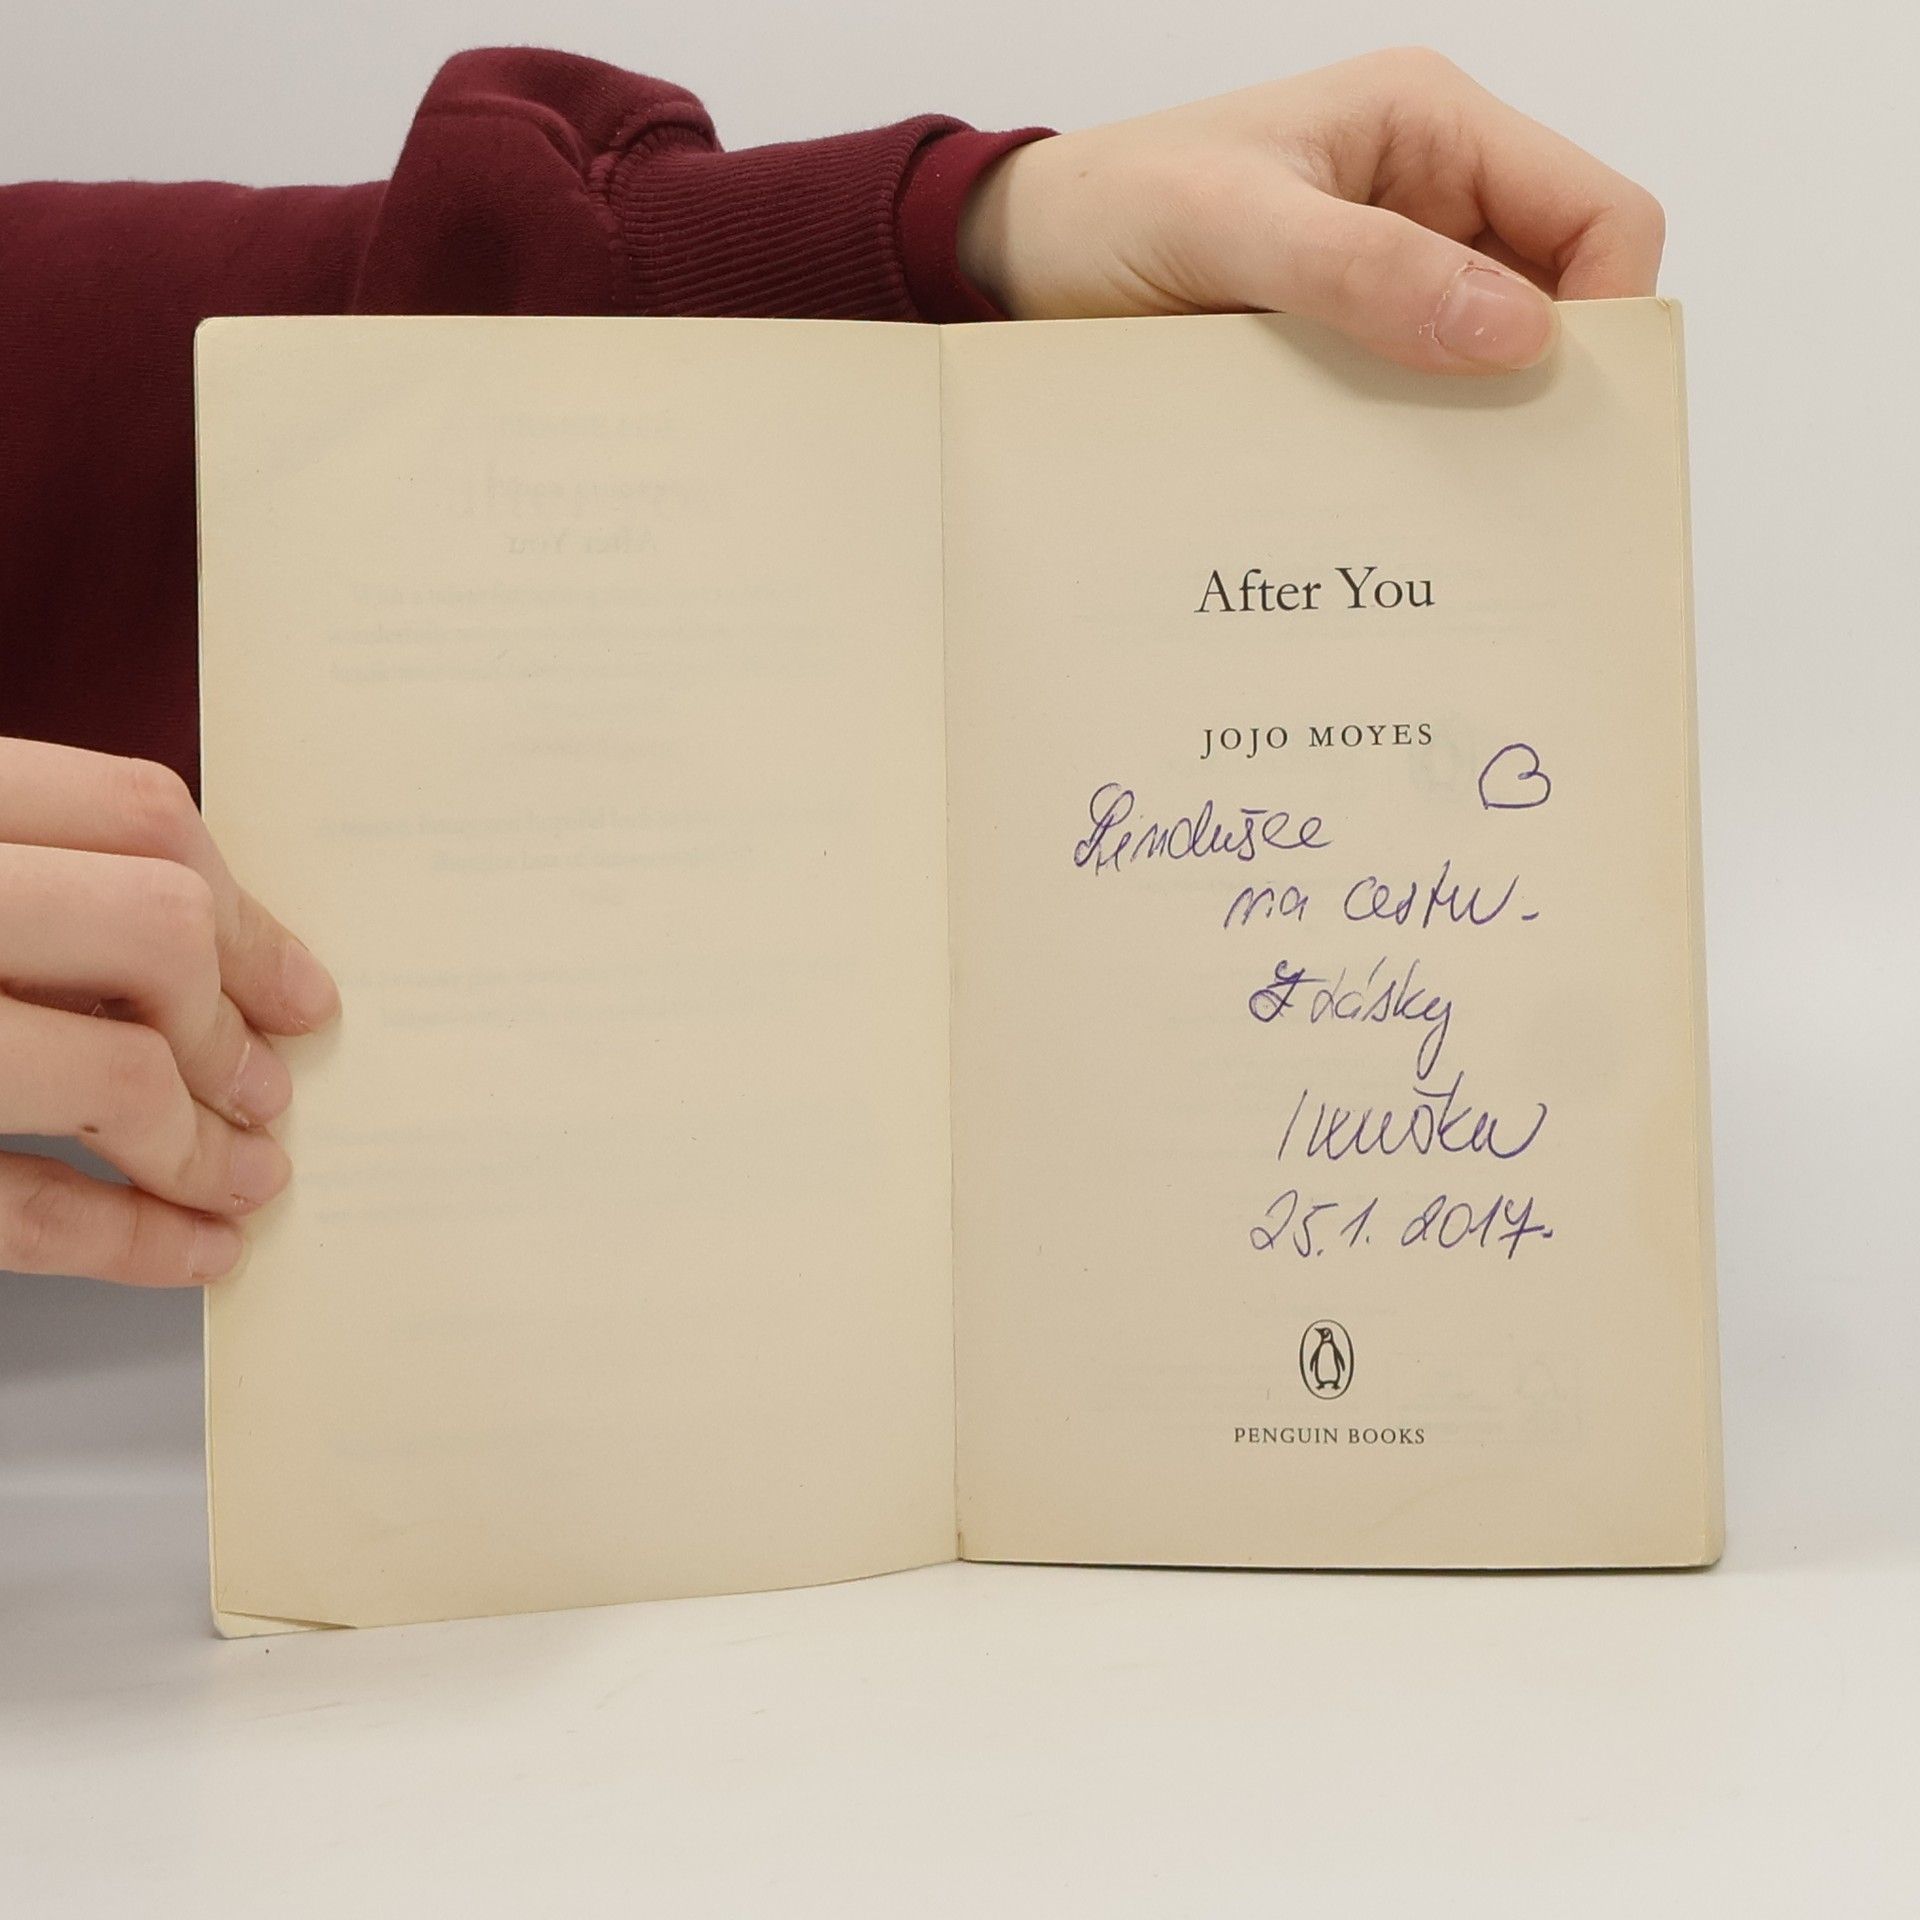 After You
JOJO MOYES
Lindušce
na cestu -
Z Lásky
Ivuška
25.1. 2017.
PENGUIN BOOKS